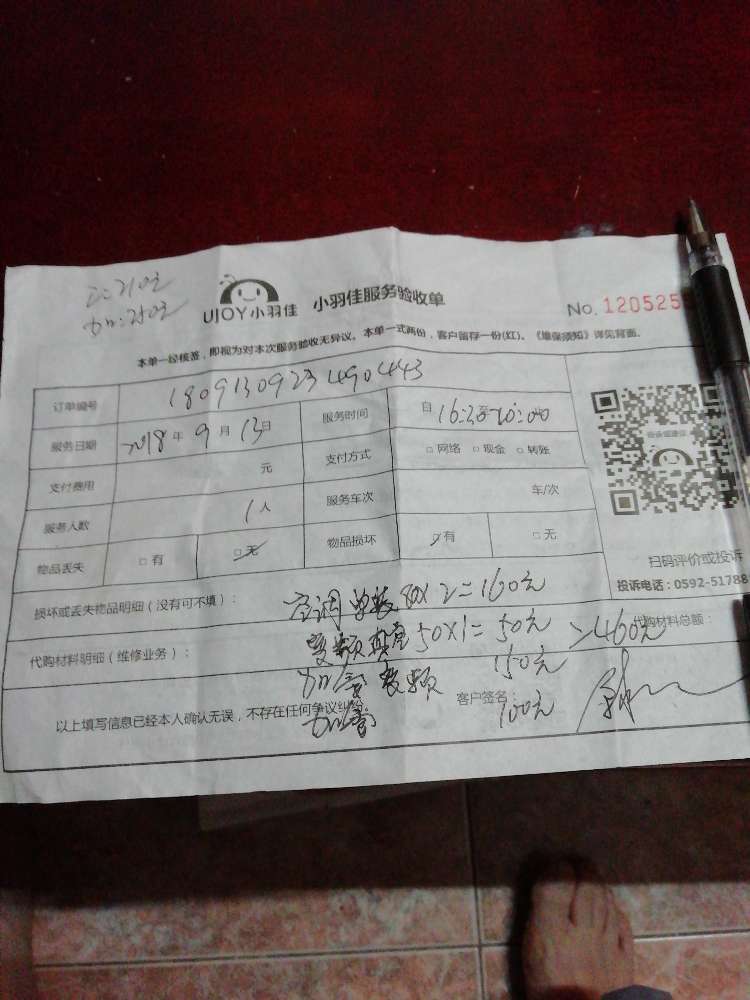 工:210元
加:250元
UJOY小羽佳 小羽佳服务验收单
No. 120525
本单一经核签,即视为对本次服务验收无异议。本单一式两份,客户留存一份(红)。《维保须知》详见背面。
订单编号 1809130923490443
服务日期 2018年9月13日 服务时间 自16:20至20:00
支付费用 元 支付方式 □网络 □现金 □转账
服务人数 1人 服务车次 车/次
物品丢失 □有 □无 物品损坏 □有 □无
扫码评价或投诉
投诉电话:0592-51788
损坏或丢失物品明细(没有可不填): 空调 80X2=160元
代购材料明细(维修业务): 变频 50X1=50元 代购材料总额:
460元
加 变频 150元
以上填写信息已经本人确认无误,不存在任何争议纠纷。 客户签名:
100元